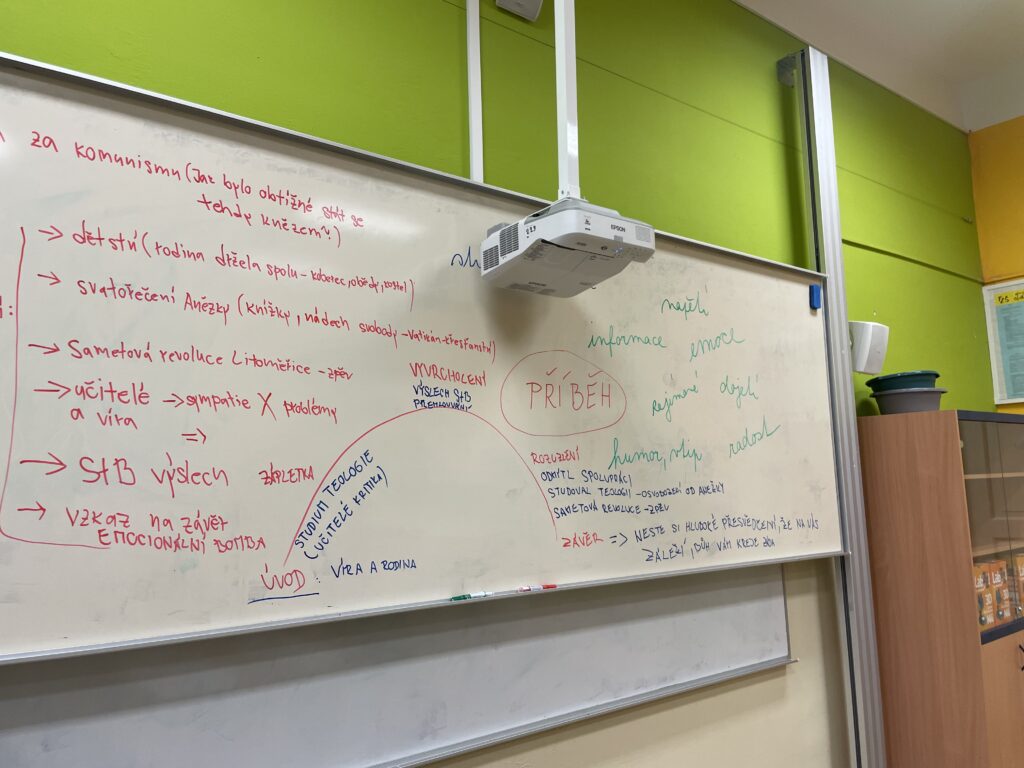 za komunismu (Jak bylo obtížné stát se
tehdy knězem?)
→ dětství (rodina držela spolu - koberec, obědy, kostel)
→ svatořečení Anežky (knížky, nádech svobody - Vatikán - křesťanství)
→ Sametová revoluce Litoměřice - zpěv
→ učitelé → sympatie X problémy
a víra
⇒
→ StB výslech ZÁPLETKA
→ VZKAZ na závěr
EMOCIONÁLNÍ BOMBA
VYVRCHOLENÍ
VÝSLECH StB
PŘEMLOUVÁNÍ
STUDIUM TEOLOGIE
(UČITELÉ KRITIKA)
ÚVOD : VÍRA A RODINA
EPSON
PŘÍBĚH
napětí
informace emoce
dojetí
humor, vtip radost
ROZUZLENÍ
ODMÍTL SPOLUPRÁCI
STUDOVAL TEOLOGII - OSVOBOZENÍ OD ANEŽKY
SAMETOVÁ REVOLUCE - ZPĚV
ZÁVĚR ⇒ NESTE SI HLUBOKÉ PŘESVĚDČENÍ, ŽE NA VÁS
ZÁLEŽÍ, BŮH VÁM KRYJE ZÁDA